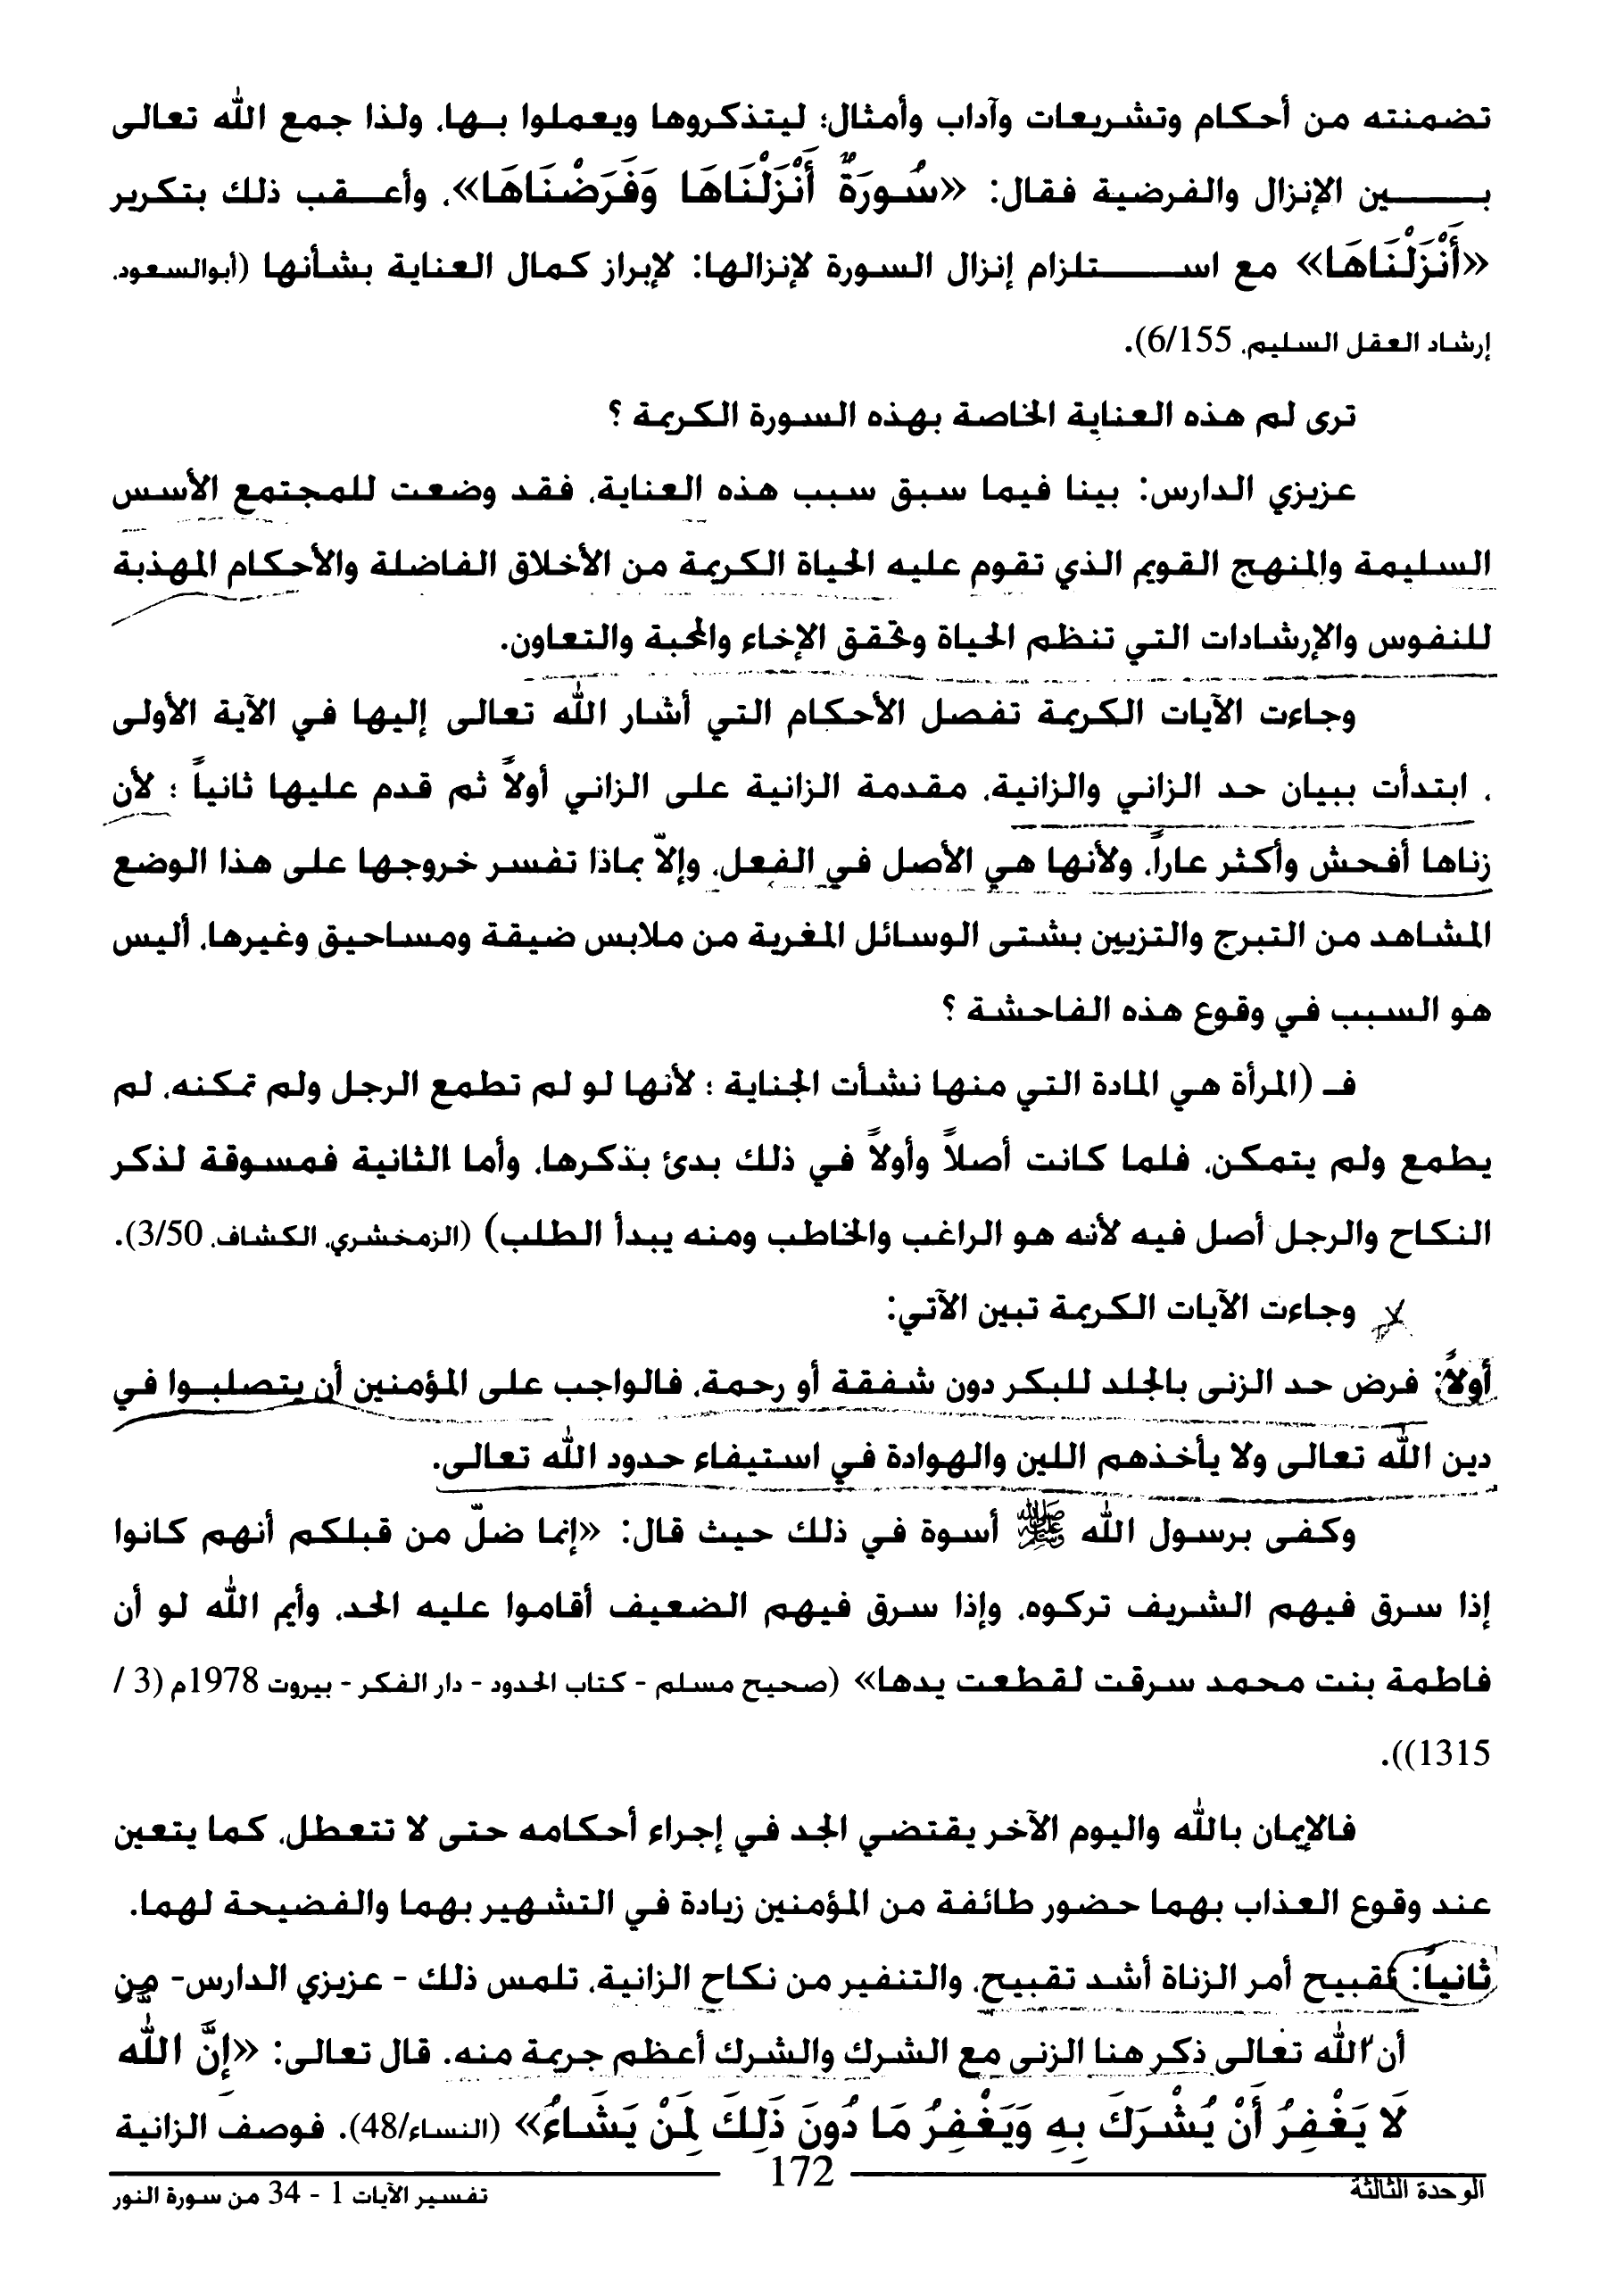 تضمنته من أحكام وتشريعات وآداب وأمثال؛ ليتذكروها ويعملوا بـها، ولذا جمع الله تعالى
بـــــين الإنزال والفرضية فقال: «سُورَةٌ أَنْزَلْنَاهَا وَفَرَضْنَاهَا»، وأعـــقب ذلك بتكرير
«أَنْزَلْنَاهَا» مع اســـــتلزام إنزال السورة لإنزالها: لإبراز كمال العناية بشأنها (أبوالسعود،
إرشاد العقل السليم، 6/155).
ترى لم هذه العناية الخاصة بهذه السورة الكريمة ؟
عزيزي الدارس: بينا فيما سبق سبب هذه العناية، فقد وضعت للمجتمع الأسس
السليمة والمنهج القويم الذي تقوم عليه الحياة الكريمة من الأخلاق الفاضلة والأحكام المهذبة
للنفوس والإرشادات التي تنظم الحياة وتحقق الإخاء والمحبة والتعاون.
وجاءت الآيات الكريمة تفصل الأحكام التي أشار الله تعالى إليها في الآية الأولى
، ابتدأت ببيان حد الزاني والزانية، مقدمة الزانية على الزاني أولاً ثم قدم عليها ثانياً ؛ لأن
زناها أفحش وأكثر عاراً، ولأنها هي الأصل في الفعل، وإلاّ بماذا تفسر خروجها على هذا الوضع
المشاهد من التبرج والتزيين بشتى الوسائل المغرية من ملابس ضيقة ومساحيق وغيرها، أليس
هو السبب في وقوع هذه الفاحشة ؟
فـ (المرأة هي المادة التي منها نشأت الجناية ؛ لأنها لو لم تطمع الرجل ولم تمكنه، لم
يطمع ولم يتمكن، فلما كانت أصلاً وأولاً في ذلك بدئ بذكرها، وأما الثانية فمسوقة لذكر
النكاح والرجل أصل فيه لأنه هو الراغب والخاطب ومنه يبدأ الطلب) (الزمخشري، الكشاف، 3/50).
وجاءت الآيات الكريمة تبين الآتي:
أولاً: فرض حد الزنى بالجلد للبكر دون شفقة أو رحمة، فالواجب على المؤمنين أن يتصلبوا في
دين الله تعالى ولا يأخذهم اللين والهوادة في استيفاء حدود الله تعالى.
وكفى برسول الله ﷺ أسوة في ذلك حيث قال: «إنما ضلّ من قبلكم أنهم كانوا
إذا سرق فيهم الشريف تركوه، وإذا سرق فيهم الضعيف أقاموا عليه الحد، وأيم الله لو أن
فاطمة بنت محمد سرقت لقطعت يدها» (صحيح مسلم - كتاب الحدود - دار الفكر - بيروت 1978م (3 /
1315)).
فالإيمان بالله واليوم الآخر يقتضي الجد في إجراء أحكامه حتى لا تتعطل، كما يتعين
عند وقوع العذاب بهما حضور طائفة من المؤمنين زيادة في التشهير بهما والفضيحة لهما.
ثانياً: تقبيح أمر الزناة أشد تقبيح، والتنفير من نكاح الزانية، تلمس ذلك - عزيزي الدارس- من
أن الله تعالى ذكر هنا الزنى مع الشرك والشرك أعظم جريمة منه، قال تعالى: «إِنَّ الله
لَا يَغْفِرُ أَنْ يُشْرَكَ بِهِ وَيَغْفِرُ مَا دُونَ ذَلِكَ لِمَنْ يَشَاءُ» (النساء/48). فوصف الزانية
الوحدة الثالثة
172
تفسير الآيات 1 - 34 من سورة النور